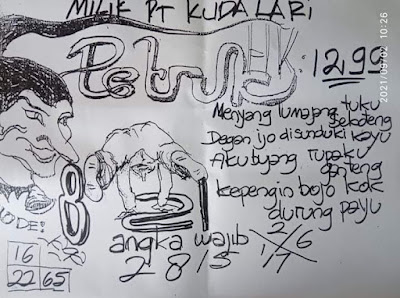 MILIK PT KUDA LARI
2021/09/02 10:26
Petruk
EK: 1299
Menyang lumajang tuku
sekoteng
Degan ijo disunduki kayu
Aku buyang rupaku
ganteng
kepengin bojo kok
durung payu
8
2
KODE!
angka wajib
2 8 1 5
2 6
1 7
16
22 65